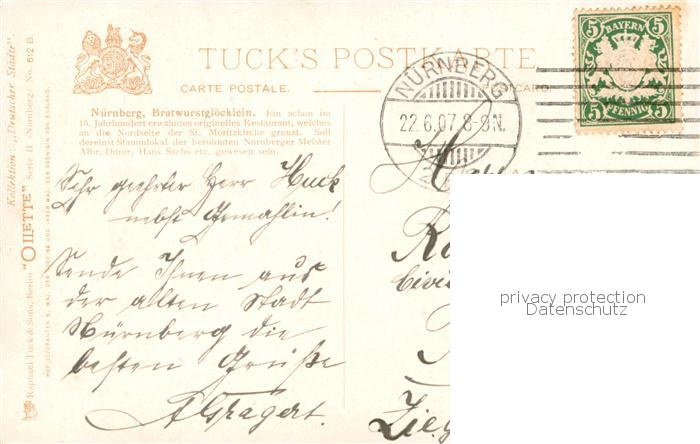 TUCK'S POSTKARTE
CARTE POSTALE.
POSTCARD.
Nürnberg, Bratwurstglöcklein. Ein schon im
15. Jahrhundert erwähntes originelles Restaurant, welches
an die Nordseite der St. Moritzkirche grenzt. Soll
dereinst Stammlokal der berühmten Nürnberger Meister
Albr. Dürer, Hans Sachs etc. gewesen sein.
Sehr geehrter Herr Huck
nebst Gemahlin!
Sende Ihnen aus
der alten Stadt
Nürnberg die
besten Grüße
NÜRNBERG
22.6.07. 8-9N.
5 BAYERN 5
5 PFENNIG 5
Kollektion „Deutscher Städte".
"OILETTE" Serie II „Nürnberg" No. 612 B.
Raphael Tuck & Sons, Berlin
privacy protection
Datenschutz